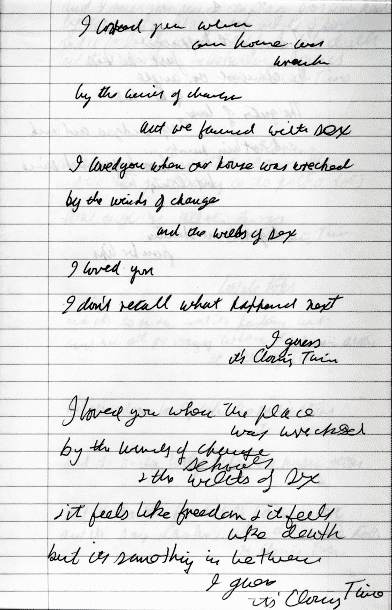 I loved you when
our home was
wreck
by the winds of change
and we fanned with sex
I loved you when our house was wrecked
by the winds of change
and the weeds of sex
I loved you
I don't recall what happened next
I guess
it's Closing Time
I loved you when the place
was wrecked
by the winds of change
schools
& the weeds of sex
& it feels like freedom & it feels
like death
but it's something in between
I guess
it's Closing Time